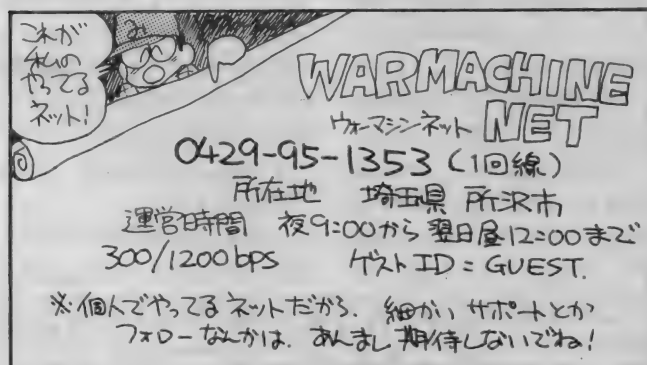 これが
私の
やってる
ネット!
WARMACHINE
ウォーマシンネット NET
0429-95-1353 (1回線)
所在地 埼玉県 所沢市
運営時間 夜9:00から翌日昼12:00まで
300/1200bps ゲストID=GUEST.
※個人でやってるネットだから、細かいサポートとか
フォローなんかは、あんまし期待しないでね!